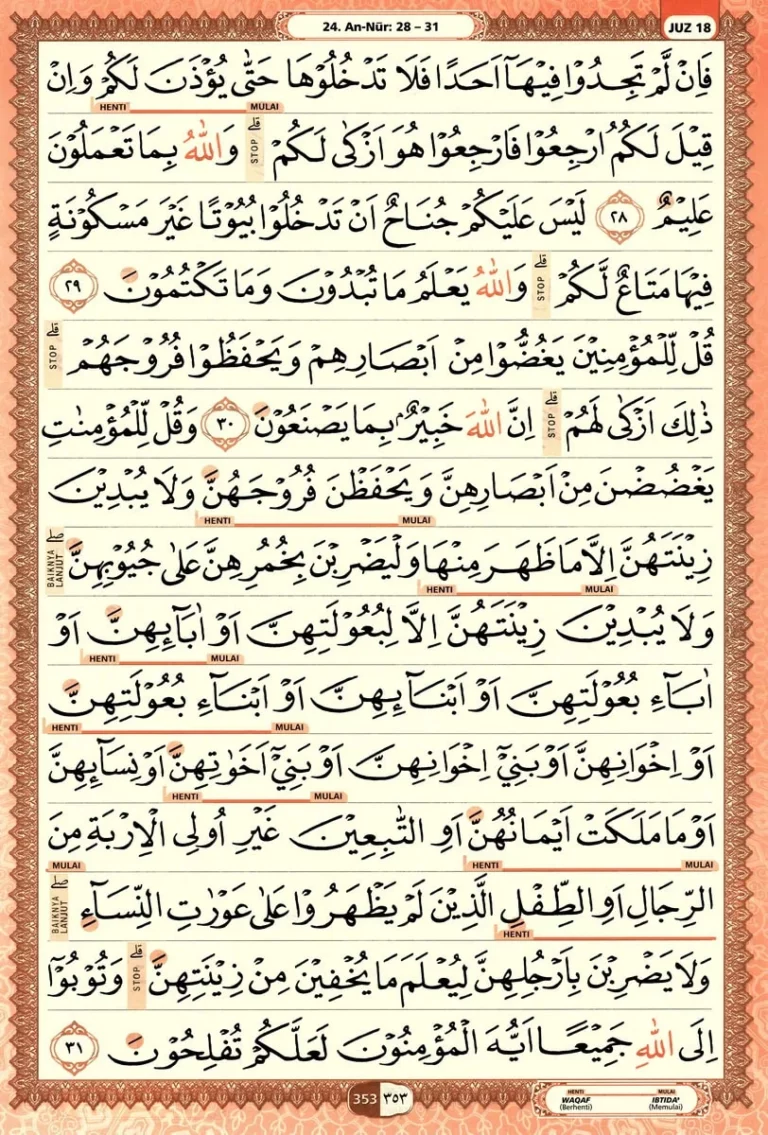 24. An-Nūr: 28 – 31
JUZ 18
فَاِنْ لَّمْ تَجِدُوْا فِيْهَآ اَحَدًا فَلَا تَدْخُلُوْهَا حَتّٰى يُؤْذَنَ لَكُمْ وَاِنْ
HENTI MULAI
قِيْلَ لَكُمُ ارْجِعُوْا فَارْجِعُوْا هُوَ اَزْكٰى لَكُمْ ۗ STOP وَاللّٰهُ بِمَا تَعْمَلُوْنَ
عَلِيْمٌ ٢٨ لَيْسَ عَلَيْكُمْ جُنَاحٌ اَنْ تَدْخُلُوْا بُيُوْتًا غَيْرَ مَسْكُوْنَةٍ
فِيْهَا مَتَاعٌ لَّكُمْ ۗ STOP وَاللّٰهُ يَعْلَمُ مَا تُبْدُوْنَ وَمَا تَكْتُمُوْنَ ٢٩
قُلْ لِّلْمُؤْمِنِيْنَ يَغُضُّوْا مِنْ اَبْصَارِهِمْ وَيَحْفَظُوْا فُرُوْجَهُمْ ۗ STOP
ذٰلِكَ اَزْكٰى لَهُمْ ۗ STOP اِنَّ اللّٰهَ خَبِيْرٌۢ بِمَا يَصْنَعُوْنَ ٣٠ وَقُلْ لِّلْمُؤْمِنٰتِ
يَغْضُضْنَ مِنْ اَبْصَارِهِنَّ وَيَحْفَظْنَ فُرُوْجَهُنَّ وَلَا يُبْدِيْنَ
HENTI MULAI
زِيْنَتَهُنَّ اِلَّا مَا ظَهَرَ مِنْهَا وَلْيَضْرِبْنَ بِخُمُرِهِنَّ عَلٰى جُيُوْبِهِنَّ ۖ BAIKNYA LANJUT
HENTI MULAI
وَلَا يُبْدِيْنَ زِيْنَتَهُنَّ اِلَّا لِبُعُوْلَتِهِنَّ اَوْ اٰبَاۤىِٕهِنَّ اَوْ
HENTI MULAI
اٰبَاۤءِ بُعُوْلَتِهِنَّ اَوْ اَبْنَاۤىِٕهِنَّ اَوْ اَبْنَاۤءِ بُعُوْلَتِهِنَّ
HENTI MULAI
اَوْ اِخْوَانِهِنَّ اَوْ بَنِيْٓ اِخْوَانِهِنَّ اَوْ بَنِيْٓ اَخَوٰتِهِنَّ اَوْ نِسَاۤىِٕهِنَّ
HENTI MULAI
اَوْ مَا مَلَكَتْ اَيْمَانُهُنَّ اَوِ التّٰبِعِيْنَ غَيْرِ اُولِى الْاِرْبَةِ مِنَ
MULAI HENTI MULAI
الرِّجَالِ اَوِ الطِّفْلِ الَّذِيْنَ لَمْ يَظْهَرُوْا عَلٰى عَوْرٰتِ النِّسَاۤءِ ۖ BAIKNYA LANJUT
HENTI
وَلَا يَضْرِبْنَ بِاَرْجُلِهِنَّ لِيُعْلَمَ مَا يُخْفِيْنَ مِنْ زِيْنَتِهِنَّ ۗ STOP وَتُوْبُوْٓا
اِلَى اللّٰهِ جَمِيْعًا اَيُّهَ الْمُؤْمِنُوْنَ لَعَلَّكُمْ تُفْلِحُوْنَ ٣١
353 ٣٥٣
HENTI MULAI
WAQAF IBTIDA'
(Berhenti) (Memulai)